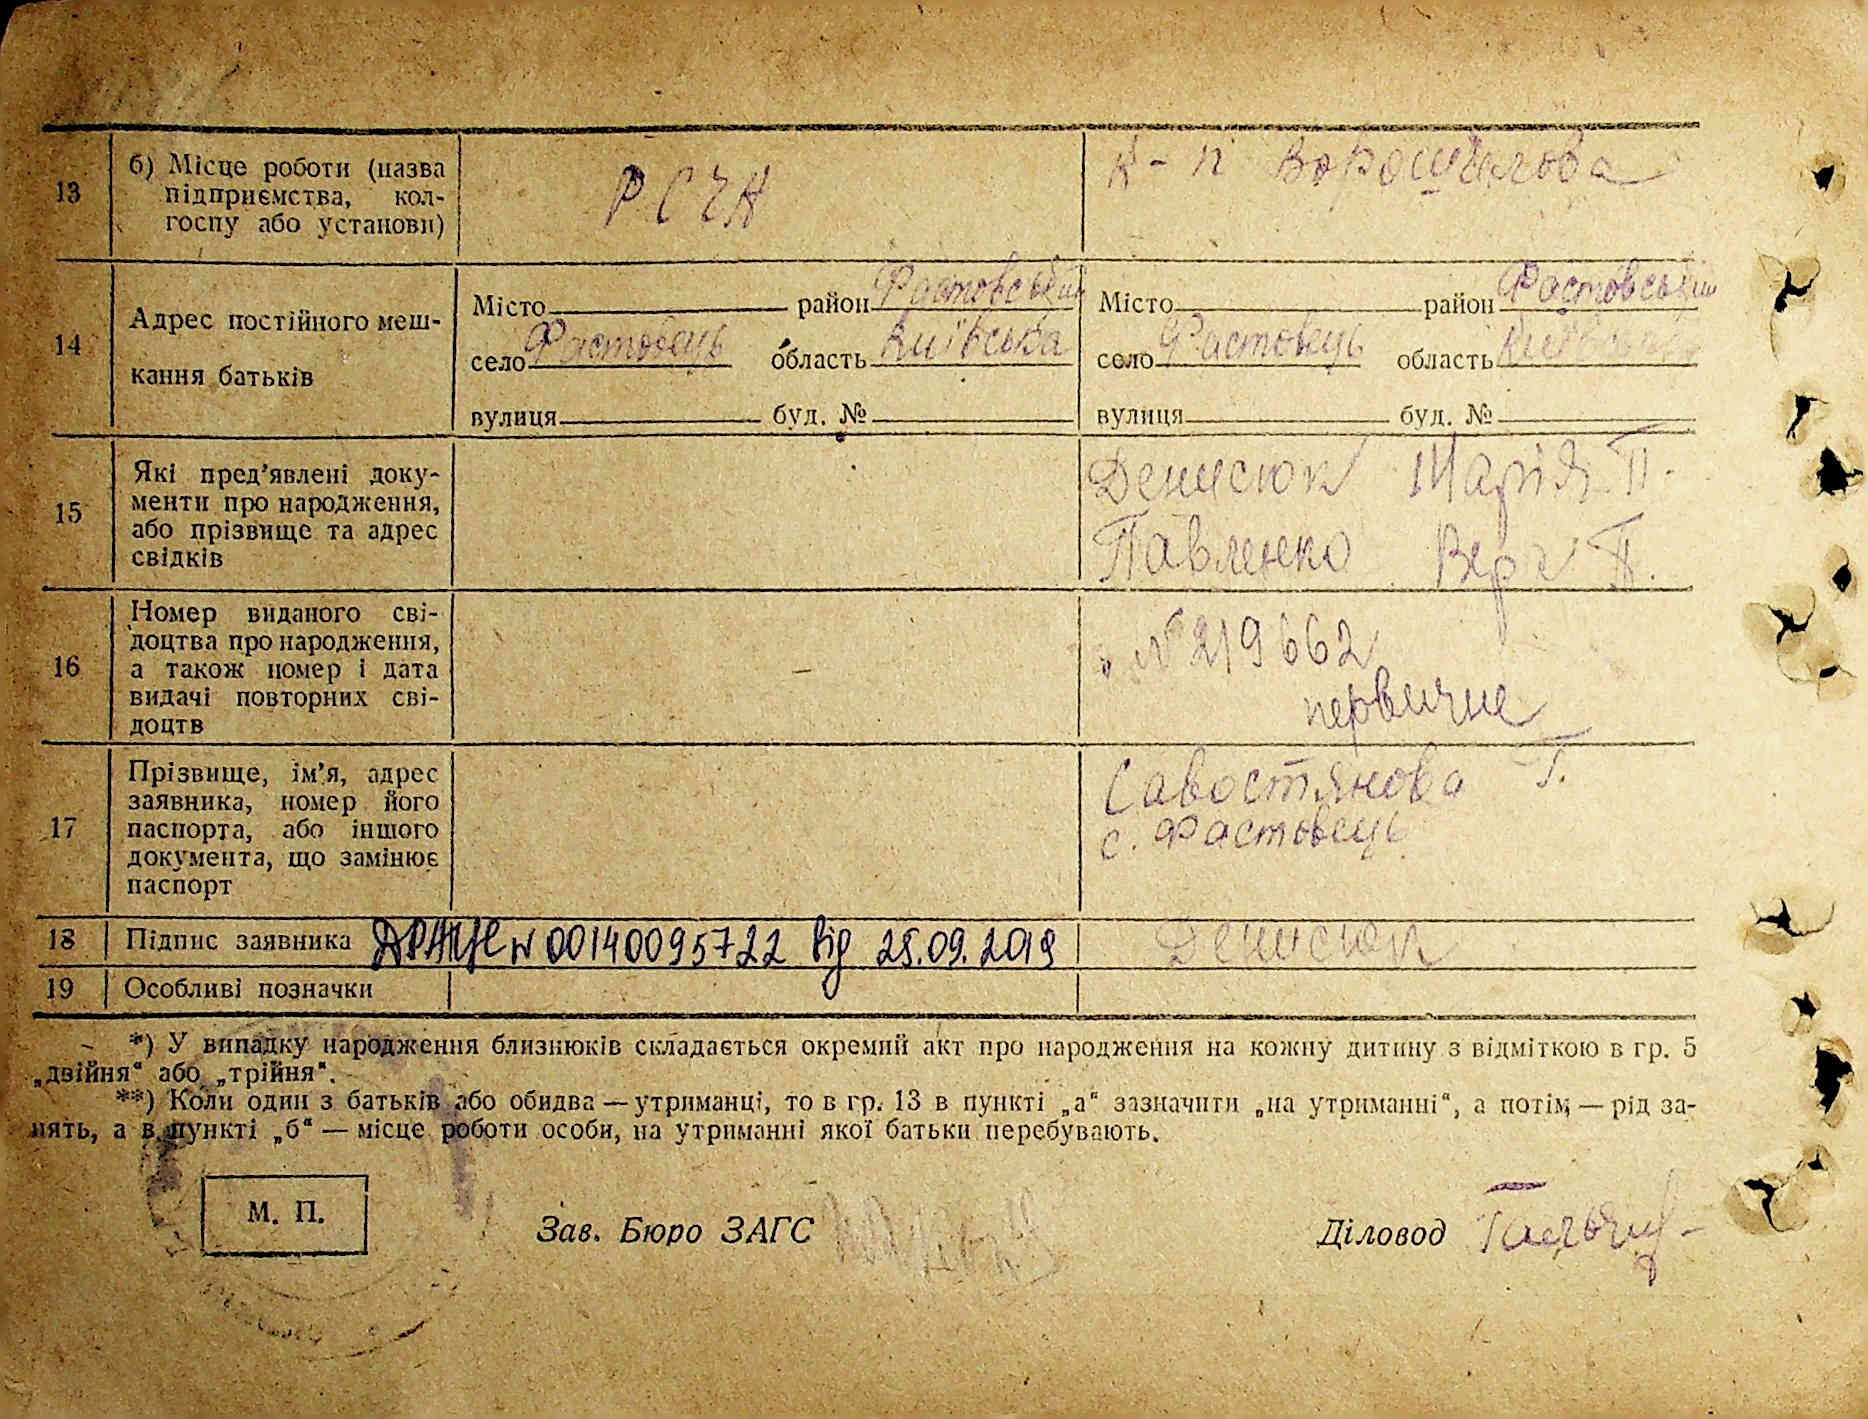 13
б) Місце роботи (назва
підприємства, кол-
госпу або установи)
РСЧА
к-п Ворошилова
14
Адрес постійного меш-
кання батьків
Місто район Фастовський
село Фастовець область Київська
вулиця буд. №
Місто район Фастовський
село Фастовець область Київська
вулиця буд. №
15
Які пред'явлені доку-
менти про народження,
або прізвище та адрес
свідків
Денисюк Марія П.
Павленко Вера П.
16
Номер виданого сві-
доцтва про народження,
а також номер і дата
видачі повторних сві-
доцтв
№ 219662
первичне
17
Прізвище, ім'я, адрес
заявника, номер його
паспорта, або іншого
документа, що замінює
паспорт
Савостянова Г.
с. Фастовець
18 Підпис заявника
ДРАЦС N 00140095722 від 25.09.2019
Денисюк
19 Особливі позначки
*) У випадку народження близнюків складається окремий акт про народження на кожну дитину з відміткою в гр. 5
„двійня" або „трійня".
**) Коли один з батьків або обидва — утриманці, то в гр. 13 в пункті „а" зазначити „на утриманні", а потім — рід за-
нять, а в пункті „б" — місце роботи особи, на утриманні якої батьки перебувають.
М. П.
Зав. Бюро ЗАГС
Діловод